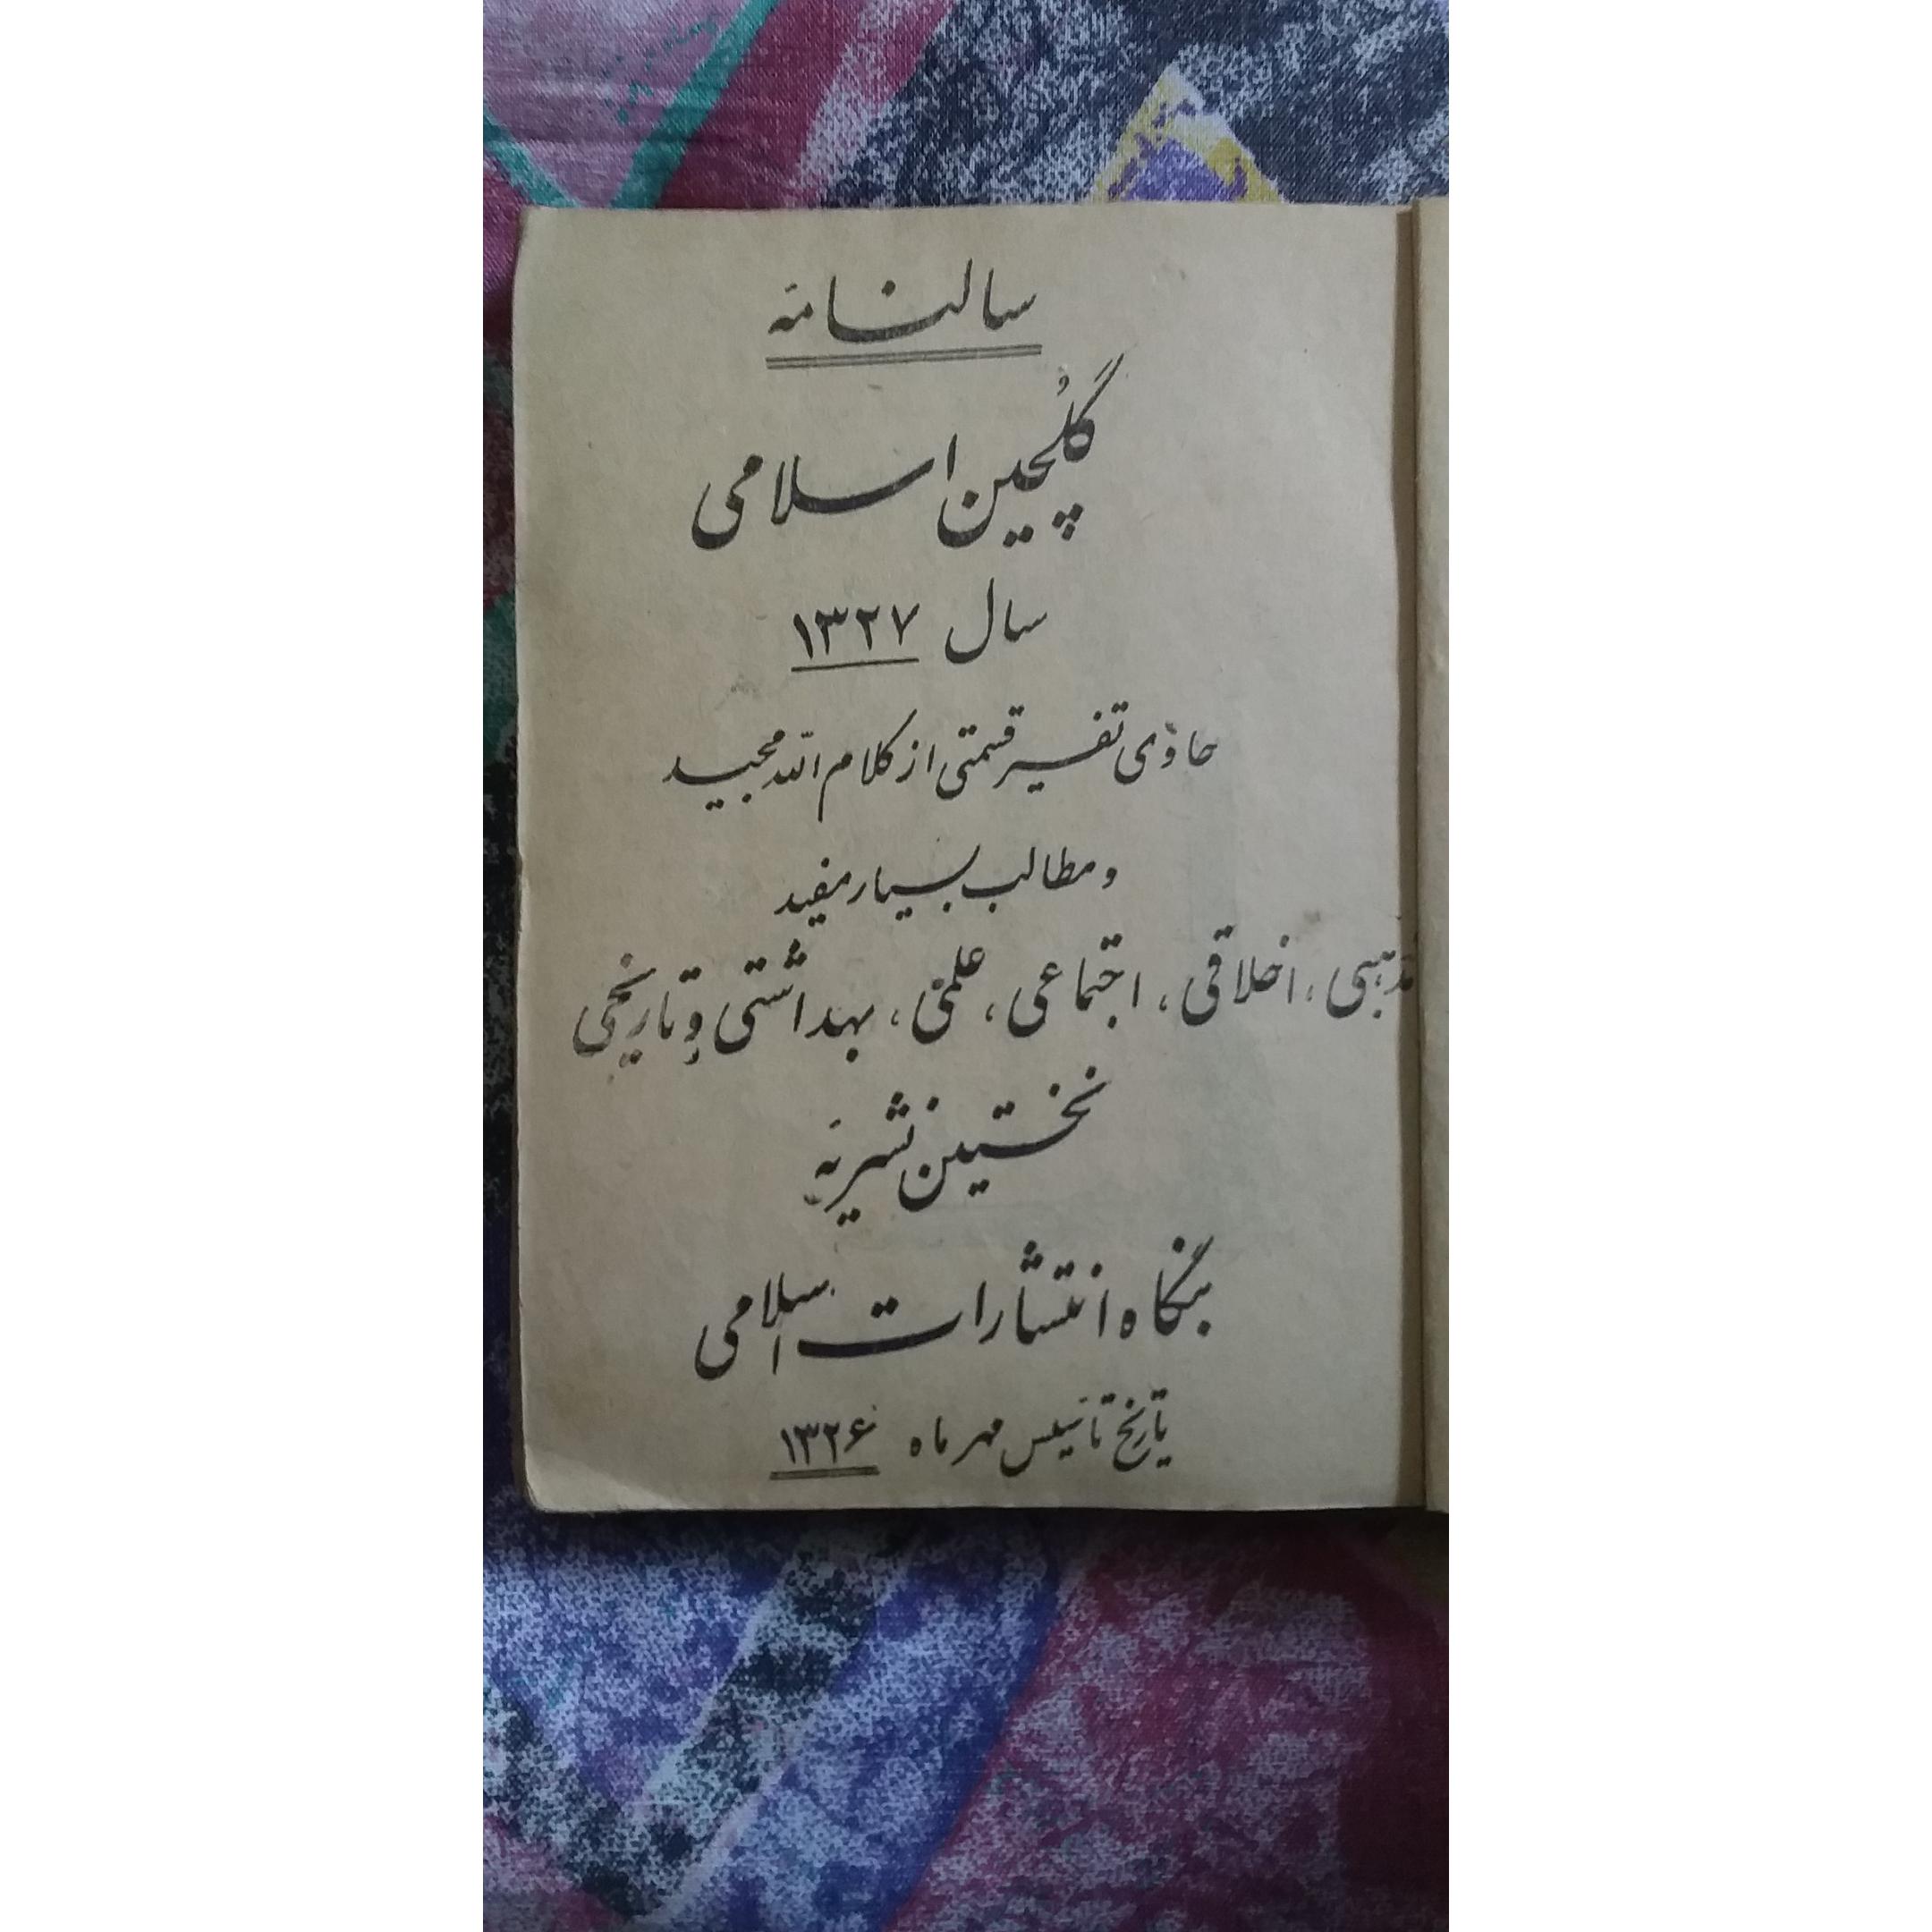 سالنامه
گلچین اسلامی
سال ۱۳۲۷
حاوی تفسیر قسمتی از کلام الله مجید
و مطالب بسیار مفید
مذهبی، اخلاقی، اجتماعی، علمی، بهداشتی و تاریخی
نخستین نشریه
بنگاه انتشارات اسلامی
تاریخ تأسیس مهر ماه ۱۳۲۶